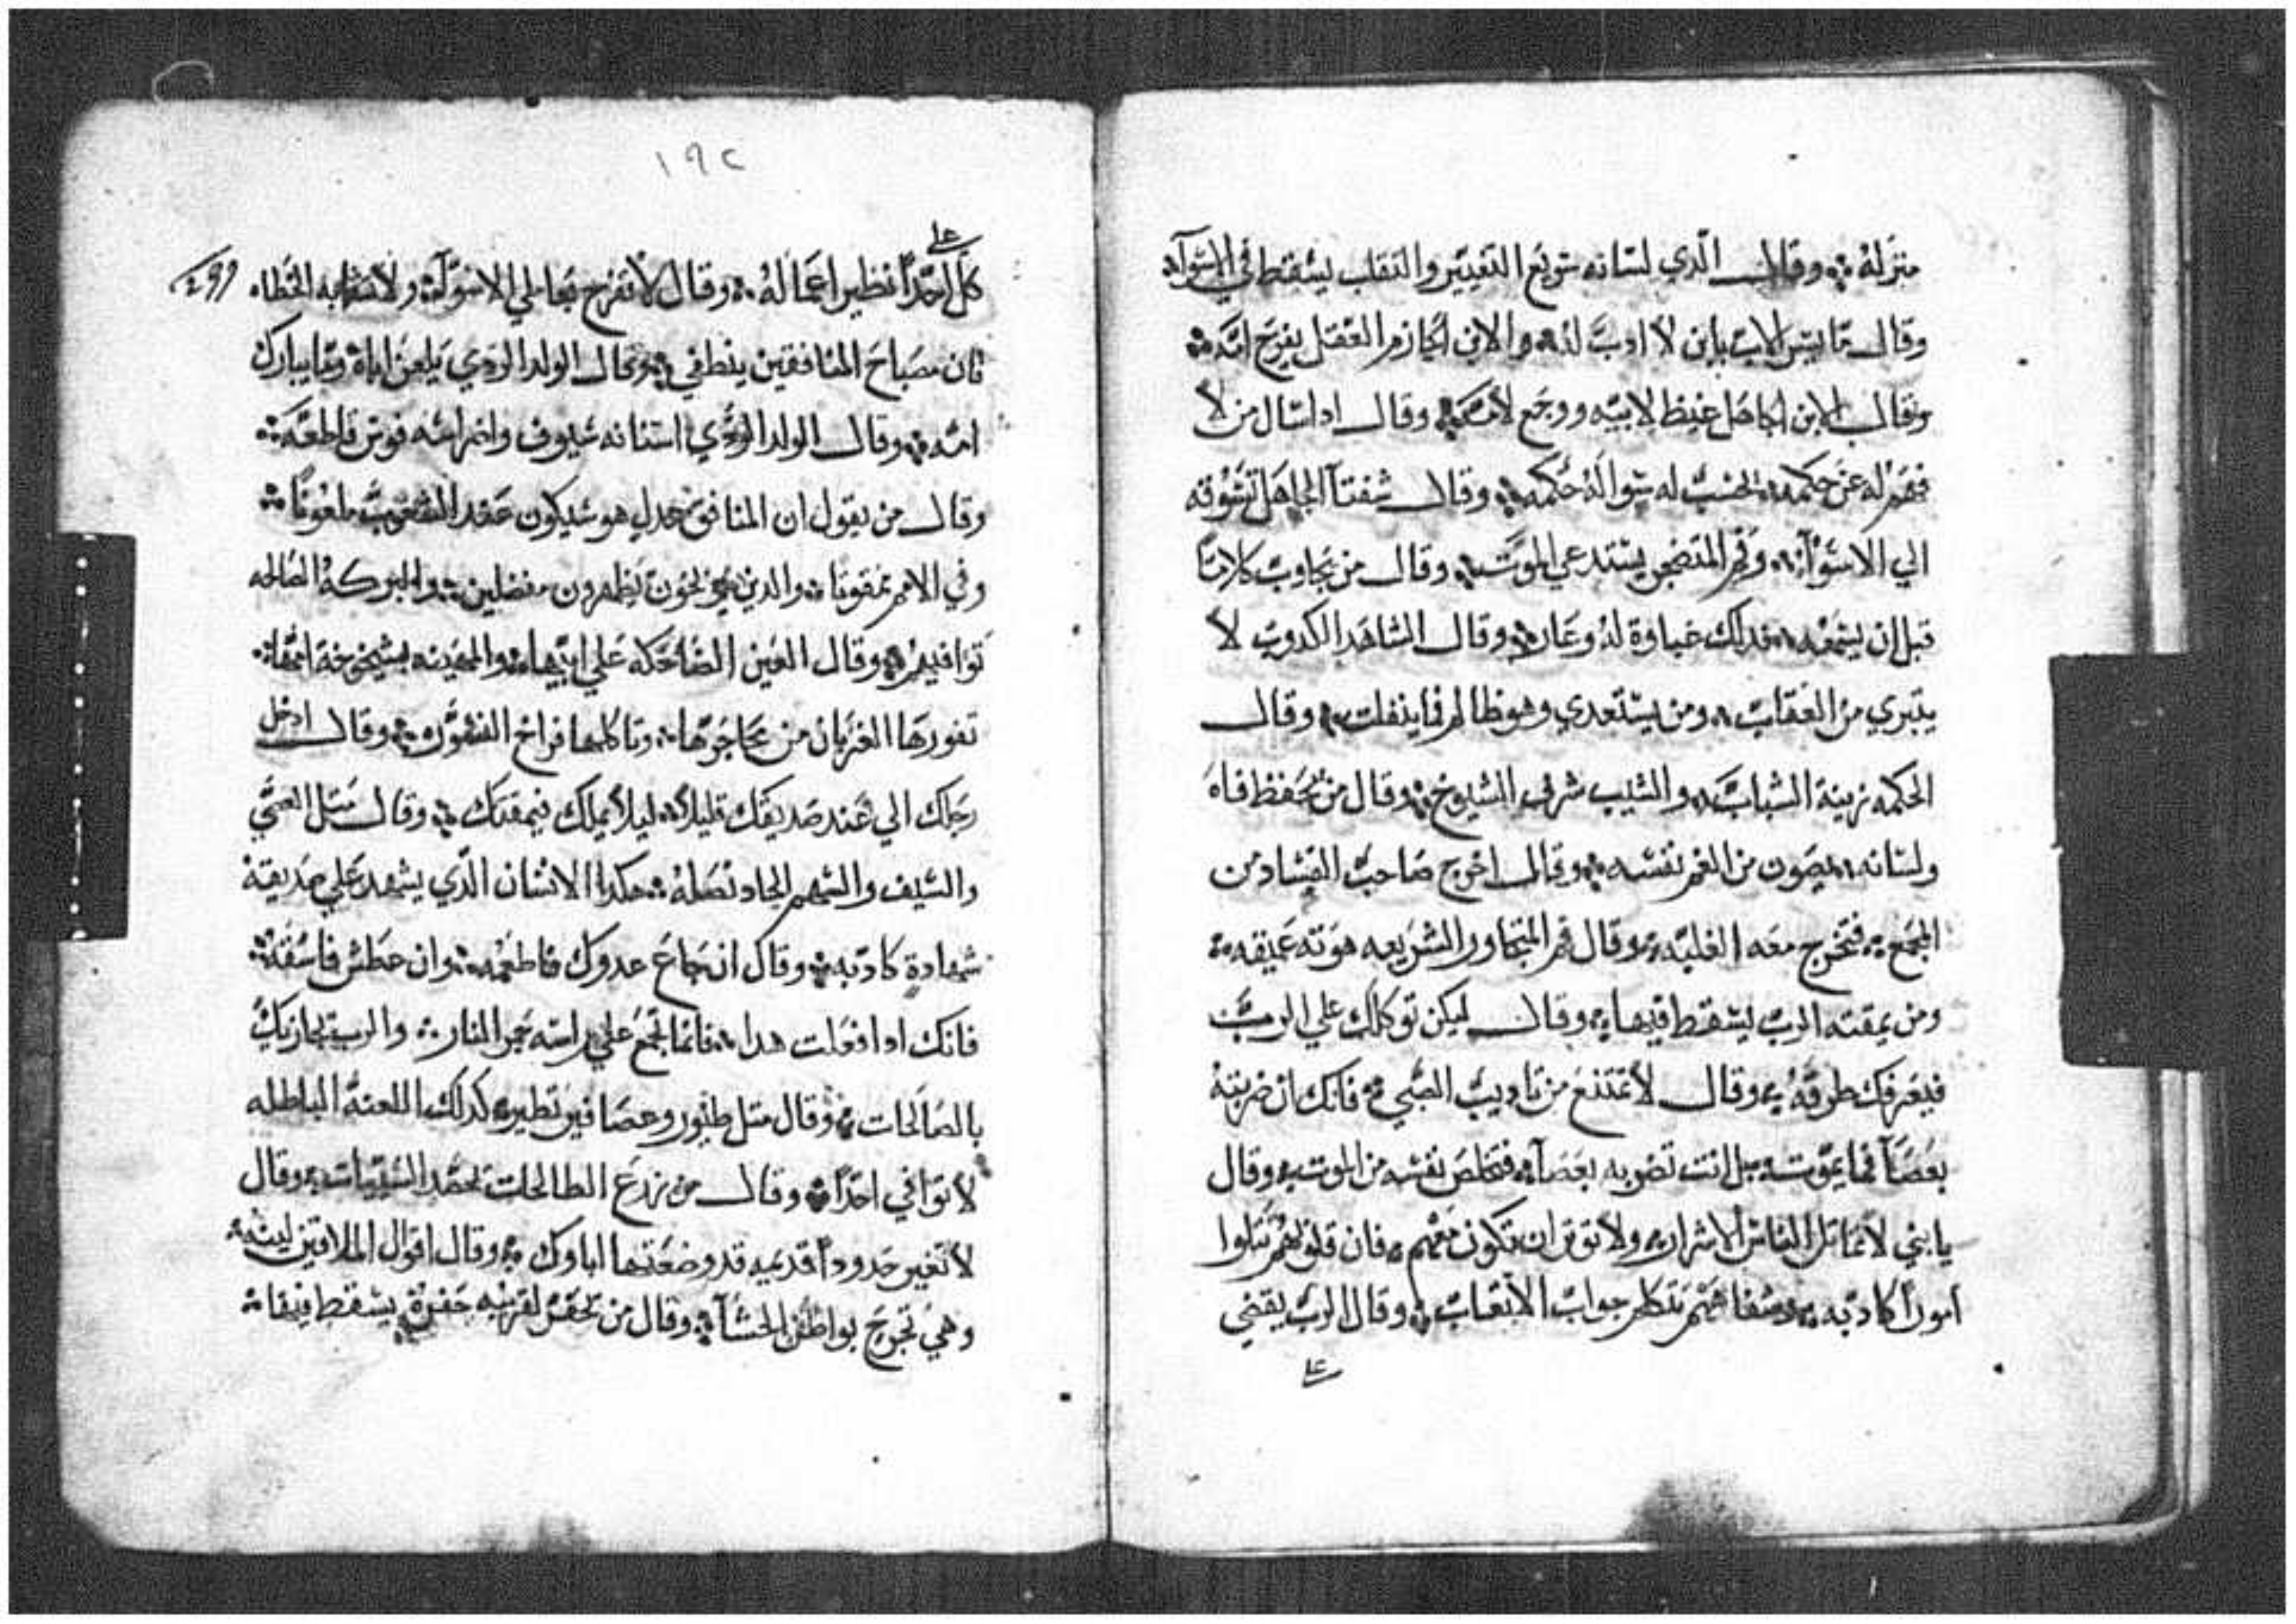 منزله ܀ وقال الدي لسانه سريع التغيير والتقلب يسقط في الاسوآ܀
وقال ما يسر الاب بابن لا ادب له ܀ والابن الحازم العقل يفرح امه ܀
وقال الابن الجاهل غيظ لابيه ووجع لامه ܀ وقال ادا سال من لا
فهم له عن حكمه ܀ احسب له سواله حكمه ܀ وقال شفتآ الجاهل تسوقه
الي الاسوآ ܀ وفم المتضجر يستدعي الموت ܀ وقال من يجاوب كلاماً
قبل ان يسمعه ܀ فدلك غباوة له وعار ܀ وقال الشاهد الكدوب لا
يتبري من العقاب ܀ ومن يستعدي وهو ظالم فما ينفلت ܀ وقال
الحكمه زينة الشباب ܀ والشيب شرف الشيوخ ܀ وقال من يحفظ فاه
ولسانه ܀ يصون من الغم نفسه ܀ وقال اخرج صاحب الفساد من
المجمع ܀ فتخرج معه الغلبه ܀ وقال فم المتجاوز الشريعه هوته عميقه ܀
ومن يمقته الرب يسقط فيها ܀ وقال ليكن توكلك علي الرب
فيعرفك طرقه ܀ وقال لا تمتنع من تاديب الصبي ܀ فانك ان ضربته
بعصآ فما يموت ܀ بل انت تضربه بعصآ ܀ فتخلص نفسه من الموت ܀ وقال
يا بني لا تماتل الناس الاشرار ܀ ولا توتر ان تكون معهم ܀ فان قلوبهم تتلوا
اموراً كادبه ܀ وشفاههم تتكلم جواب الاتعاب ܀ وقال الرب يقضي
علي
١٩٢
علي
كل احداً نظير اعماله ܀ وقال لا تفرح بفاعلي الاسوآ ܀ ولا تشابه الخطاه
فان مصباح المنافقين ينطفي ܀ وقال الولد الردي يلعن اباه وما يبارك
امه ܀ وقال الولد الردي اسنانه سيوف واضراسه فوس قاطعه ܀
وقال من يقول ان المنافق عدل هو سيكون عند الشعوب ملعوناً ܀
وفي الامم ممقوتا ܀ والدين يوبخون يظهرون مفضلين ܀ والبركة الصالحه
توافيهم ܀ وقال العين الضاحكه علي ابيها ܀ والمهينه بشيخوخة امها ܀
تقورها الغربان من محاجرها ܀ وتاكلها فراخ النسور ܀ وقال ادخل
رجلك الي عند صديقك قليلاً ܀ ليلا يملك فيمقتك ܀ وقال متل العصي
والسيف والسهم الحاد نصله ܀ هكدا الانسان الدي يشهد علي صديقة
شهادة كادبه ܀ وقال ان جاع عدوك فاطعمه ܀ وان عطش فاسقه ܀
فانك ادا فعلت هدا ܀ فانما تجمع علي راسه جمر النار ܀ والرب يجازيك
بالصالحات ܀ وقال متل طيور وعصافير تطير ܀ كدلك اللعنه الباطله
لا توافي احداً ܀ وقال من يزرع الطالحات يحصد السيات ܀ وقال
لا تغير حدوداً قديمه قد وضعتها اباوك ܀ وقال اقوال الملاقين لينه ܀
وهي تجرح بواطن الحشآ ܀ وقال من يحفر لقريبه حفرة يسقط فيها ܀